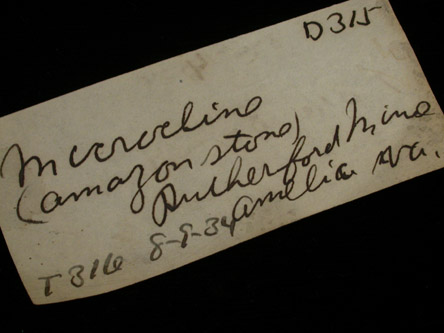 D315
Microcline
(amazon stone)
Rutherford Mine
Amelia Va.
T316 8-9-34